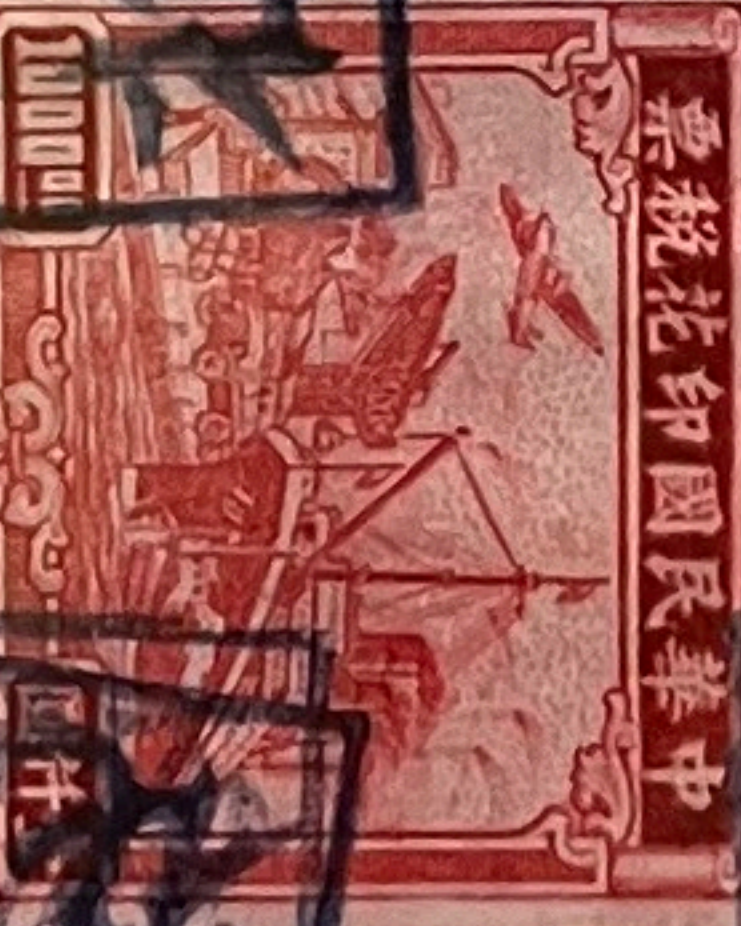 中華民國印花稅票
仟圓
1000